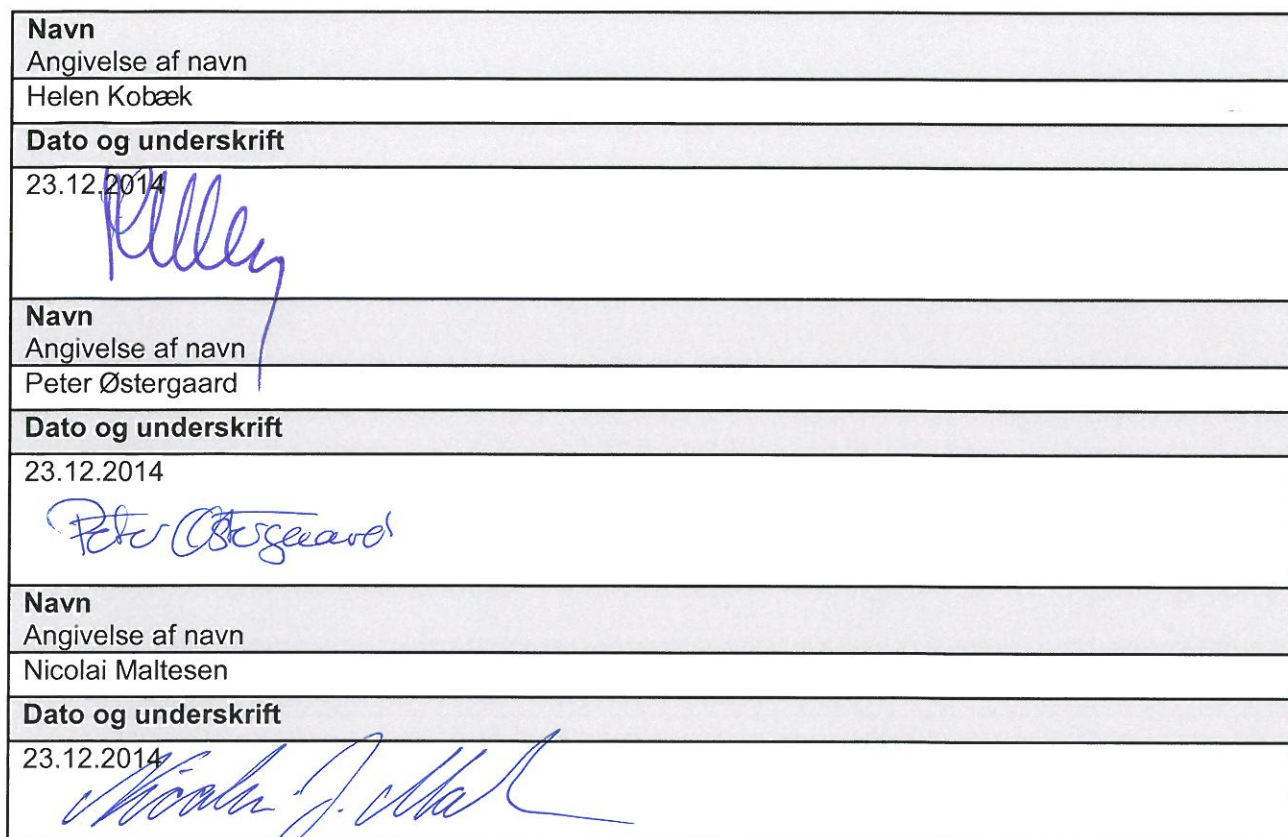 Navn
Angivelse af navn
Helen Kobæk
Dato og underskrift
23.12.2014
Navn
Angivelse af navn
Peter Østergaard
Dato og underskrift
23.12.2014
Peter Østergaard
Navn
Angivelse af navn
Nicolai Maltesen
Dato og underskrift
23.12.2014
Nicolai J. Mal